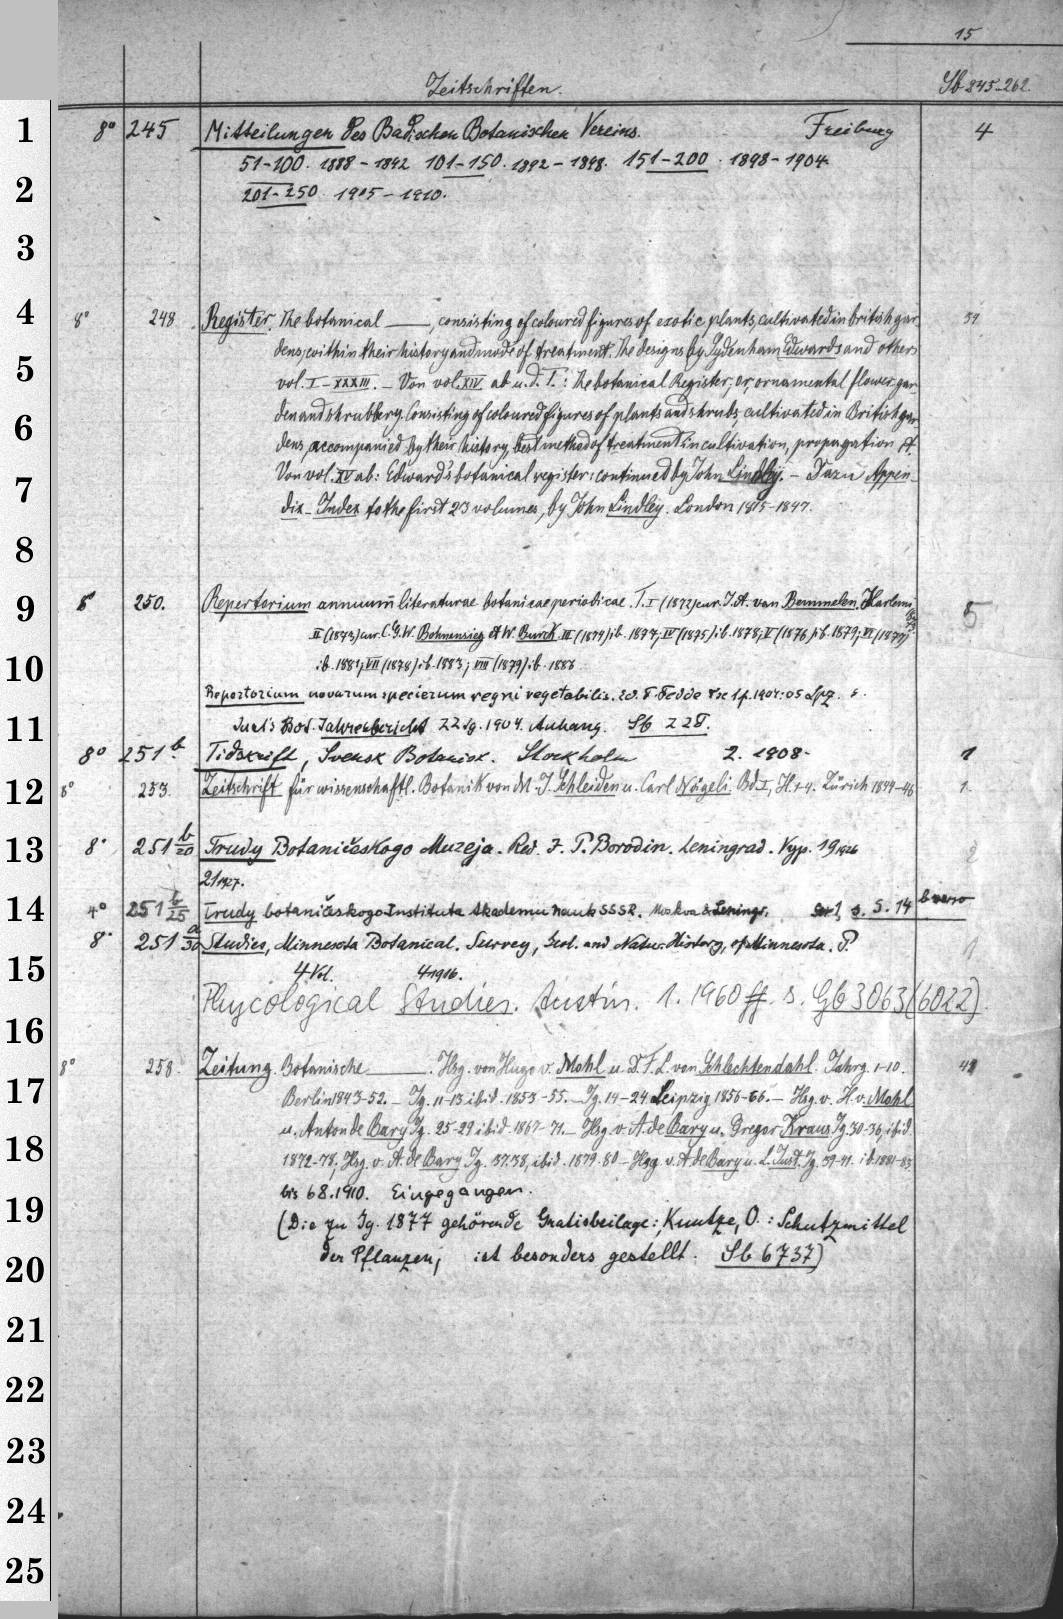 15
Zeitschriften.
Sb 245-262.
1
8° 245 Mitteilungen des Badischen Botanischen Vereins. Freiburg 4
51-100. 1888-1892 101-150. 1892-1898. 151-200. 1898-1904.
2
201-250. 1905-1910.
3
4
8° 248. Register. The botanical ——, consisting of coloured figures of exotic plants, cultivated in british gar- 34
dens; within their history and mode of treatment. The designs by Sydenham Edwards and others
5
vol. I-XXXIII. - Von vol. XIV. ab u. d. T.: The botanical Register, or, ornamental flower-gar-
den and shrubbery. Consisting of coloured figures of plants and shrubs, cultivated in British gar-
6
dens, accompanied by their history, best method of treatment in cultivation, propagation
Von vol. XV ab: Edward's botanical register: continued by John Lindley. - Dazu Appen-
7
dix - Index to the first 23 volumes, by John Lindley. London 1815-1847.
8
9
8° 250. Repertorium annuum literaturae botanicae periodicae. T. I (1872) cur. J. A. van Bemmelen. Harlemi 5
II (1873) cur. C. G. W. Bohnensieg et W. Burck III (1874) ib. 1877; IV (1875) ib. 1878; V (1876) ib. 1879; VI (1877)
10
ib. 1881; VII (1878) ib. 1883; VIII (1879) ib. 1886
Repertorium novarum specierum regni vegetabilis. Ed. F. Fedde Fsc 1 f. 1904:05 Lpz.
11
Just's Bot. Jahresbericht Jg. 1904. Anhang. Sb
8° 251 b. Tidskrift, Svensk Botanisk. Stockholm 2. 1908- 1
12
8° 253. Zeitschrift für wissenschaftl. Botanik von M. J. Schleiden u. Carl Nägeli. Bd I, H. 1-4. Zürich 1844-46 1.
13
8° 251 b/20 Trudy Botaničeskogo Muzeja. Red. I. P. Borodin. Leningrad. Vyp. 19 1926 2
21 1927.
14
4° 251 b/25 Trudy botaničeskogo Instituta Akademii Nauk SSSR. Moskva & Leningr. s. S. 14 b verso
8° 251 a/30 Studies, Minnesota Botanical. Survey, Geol. and Natur. History, of Minnesota. P. 1
15
4 Vol. 4 1916.
Phycological Studies. Austin. 1. 1960 ff. s. Gb 3063 (6022)
16
8° 258. Zeitung. Botanische ——. Hsg. von Hugo v. Mohl u. D. F. L. von Schlechtendahl. Jahrg. 1-10.
17
Berlin 1843-52. - Jg. 11-13 ibid. 1853-55. - Jg. 14-24 Leipzig 1856-66. - Hsg. v. H. v. Mohl
u. Anton de Bary Jg. 25-29 ibid. 1867-71. - Hsg. v. A. de Bary u. Gregor Kraus Jg. 30-36, ibid.
18
1872-78, Hsg. v. A. de Bary Jg. 37.38, ibid. 1879.80 - Hsg. v. A. de Bary u. L. Just. Jg. 39-41. ib. 1881-83
bis 68. 1910. Eingegangen.
19
(Die zu Jg. 1877 gehörende Gratisbeilage: Kuntze, O.: Schutzmittel
20
der Pflanzen, ist besonders gestellt. Sb 6737)
21
22
23
24
25